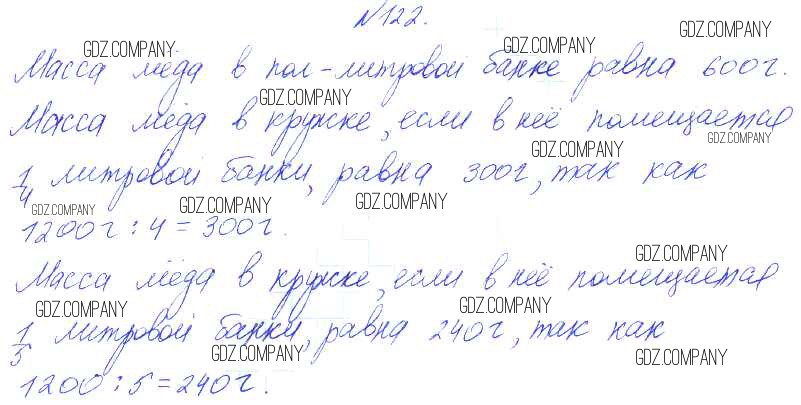 №122.
Масса мёда в пол-литровой банке равна 600г.
Масса мёда в кружке, если в неё помещается
1/4 литровой банки, равна 300г, так как
1200г : 4 = 300г.
Масса мёда в кружке, если в неё помещается
1/5 литровой банки, равна 240г, так как
1200 : 5 = 240г.
GDZ.COMPANY
GDZ.COMPANY
GDZ.COMPANY
GDZ.COMPANY
GDZ.COMPANY
GDZ.COMPANY
GDZ.COMPANY
GDZ.COMPANY
GDZ.COMPANY
GDZ.COMPANY
GDZ.COMPANY
GDZ.COMPANY
GDZ.COMPANY
GDZ.COMPANY